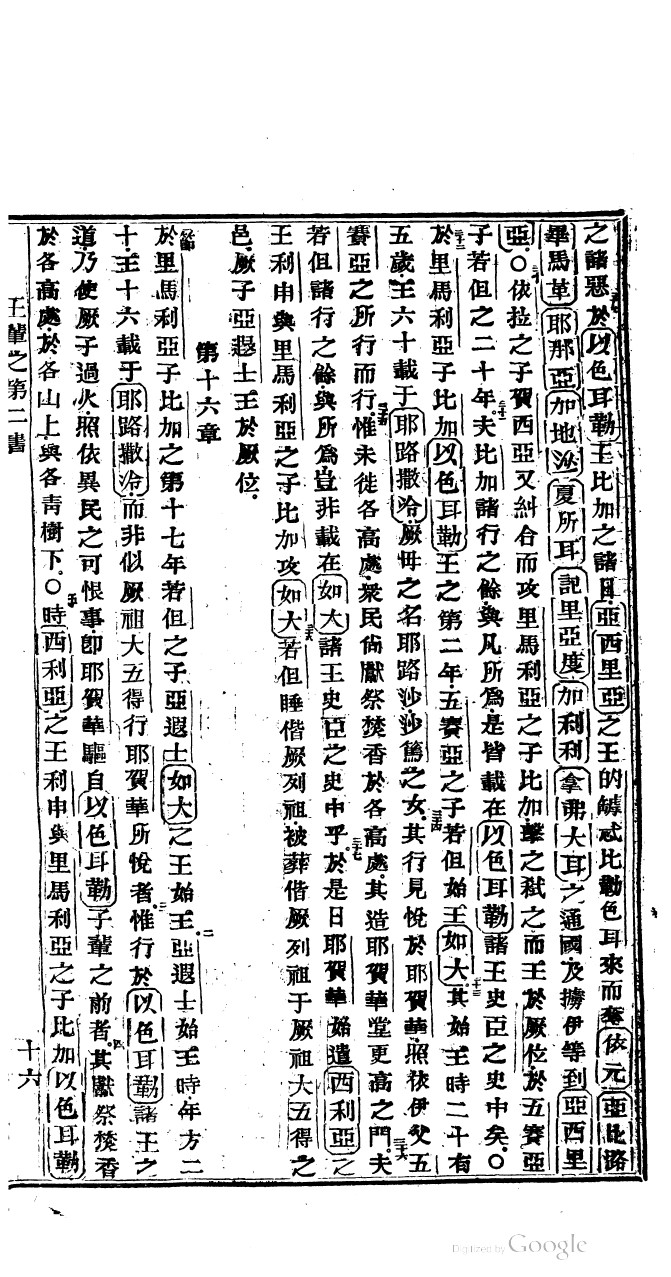 之諸惡於以色耳勒王比加之諸日亞西里亞之王的鱸忒比勒色耳來而奪依元亞比路
畢馬革耶那亞加地沙夏所耳記里亞度加利利拿弗大耳之通國及擄伊等到亞西里
亞○依拉之子賀西亞又糾合而攻里馬利亞之子比加擊之弒之而王於厥位於五賽亞
子若但之二十年三十夫比加諸行之餘與凡所為是皆載在以色耳勒諸王史臣之史中矣○
於里馬利亞子比加以色耳勒王之第二年五賽亞之子若但始王如大其始王時二十有
五歲王六十載于耶路撒冷厥母之名耶路沙沙篤之女其行見悅於耶賀華照依伊父五
賽亞之所行而行惟未徙各高處衆民尙獻祭焚香於各高處其造耶賀華堂更高之門夫
若但諸行之餘與所為豈非載在如大諸王史臣之史中乎於是日耶賀華始遣西利亞之
王利申與里馬利亞之子比加攻如大若但睡偕厥列祖被葬偕厥列祖于厥祖大五得之
邑厥子亞遐士王於厥位
第十六章
於里馬利亞子比加之第十七年若但之子亞遐士如大之王始王二亞遐士始王時年方二
十王十六載于耶路撒冷而非似厥祖大五得行耶賀華所悅者惟行於以色耳勒諸王之
道乃使厥子過火照依異民之可恨事卽耶賀華驅自以色耳勒子輩之前者其獻祭焚香
於各高處於各山上與各靑樹下○時西利亞之王利申與里馬利亞之子比加以色耳勒
王輩之第二書
十六
Digitized by Google